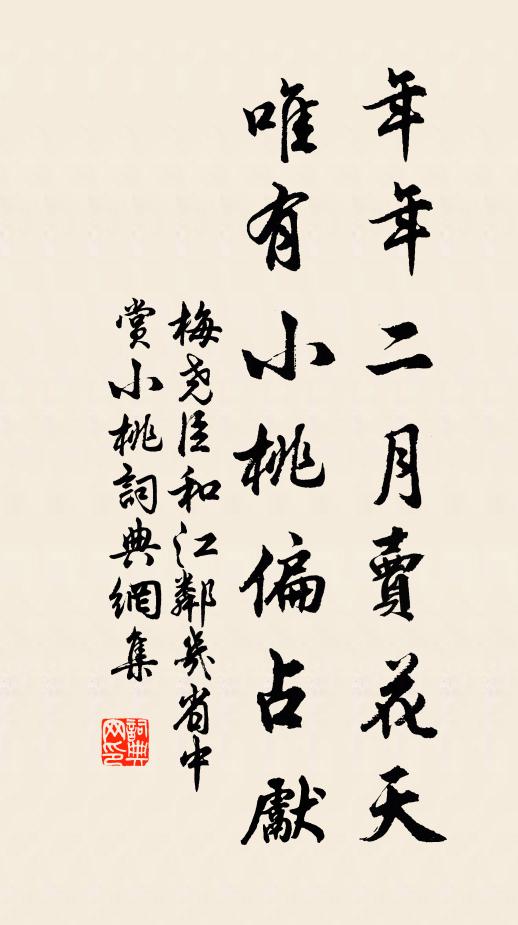 年年二月賣花天
唯有小桃偏占獻
梅堯臣和江鄰幾省中
賞小桃詞典網集
詞典網印